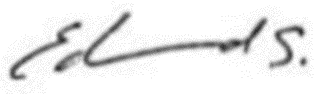 Edward S.